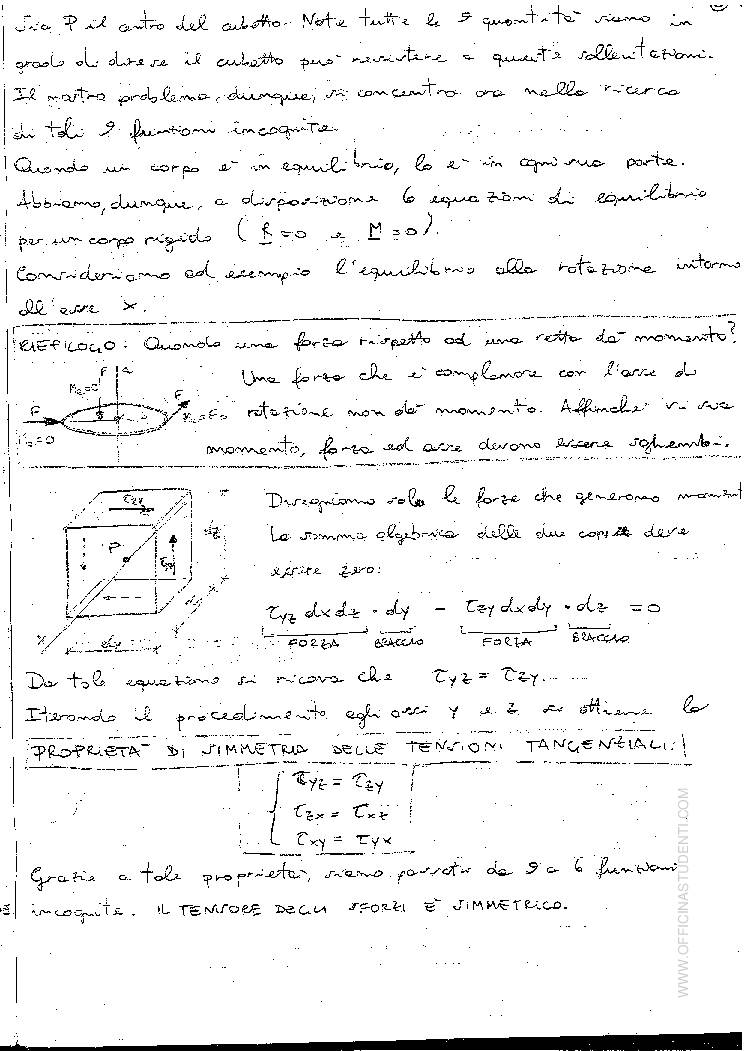 Sia P il centro del cubetto. Note tutte le 9 quantità siamo in
grado di dire se il cubetto può resistere a queste sollecitazioni.
Il nostro problema, dunque, si concentra ora nella ricerca
di tali 9 funzioni incognite.
Quando un corpo è in equilibrio, lo è in ogni sua parte.
Abbiamo, dunque, a disposizione 6 equazioni di equilibrio
per un corpo rigido (R=0 e M=0).
Consideriamo ad esempio l'equilibrio alla rotazione intorno
all'asse x.
RIEPILOGO: Quando una forza rispetto ad una retta dà momento?
Una forza che è complanare con l'asse di
rotazione non dà momento. Affinché vi sia
momento, forza ed asse devono essere sghembi.
F
a
Ma=0
F
F
τzy
P
τyz
dz
x
dy
Disegniamo solo le forze che generano moment
La somma algebrica delle due coppie deve
essere zero:
τyz dxdz · dy - τzy dxdy · dz = 0
FORZA BRACCIO FORZA BRACCIO
Da tale equazione si ricava che τyz = τzy.
Iterando il procedimento agli assi y e z si ottiene la
PROPRIETÀ DI SIMMETRIA DELLE TENSIONI TANGENZIALI:
τyz = τzy
τzx = τxz
τxy = τyx
Grazie a tale proprietà, siamo passati da 9 a 6 funzioni
incognite. IL TENSORE DEGLI SFORZI È SIMMETRICO.
WWW.OFFICINASTUDENTI.COM